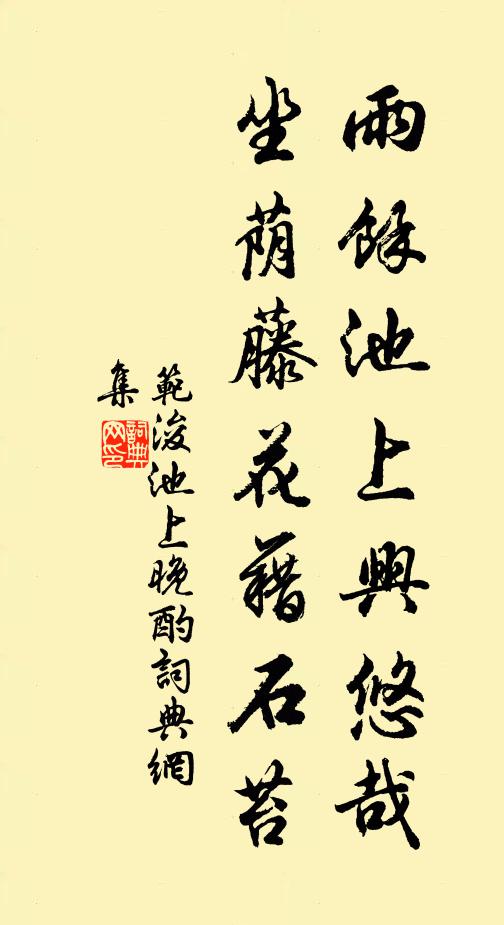 雨餘池上興悠哉
坐荫藤花藉石苔
範浚池上晚酌詞典網
集
詞典
网印